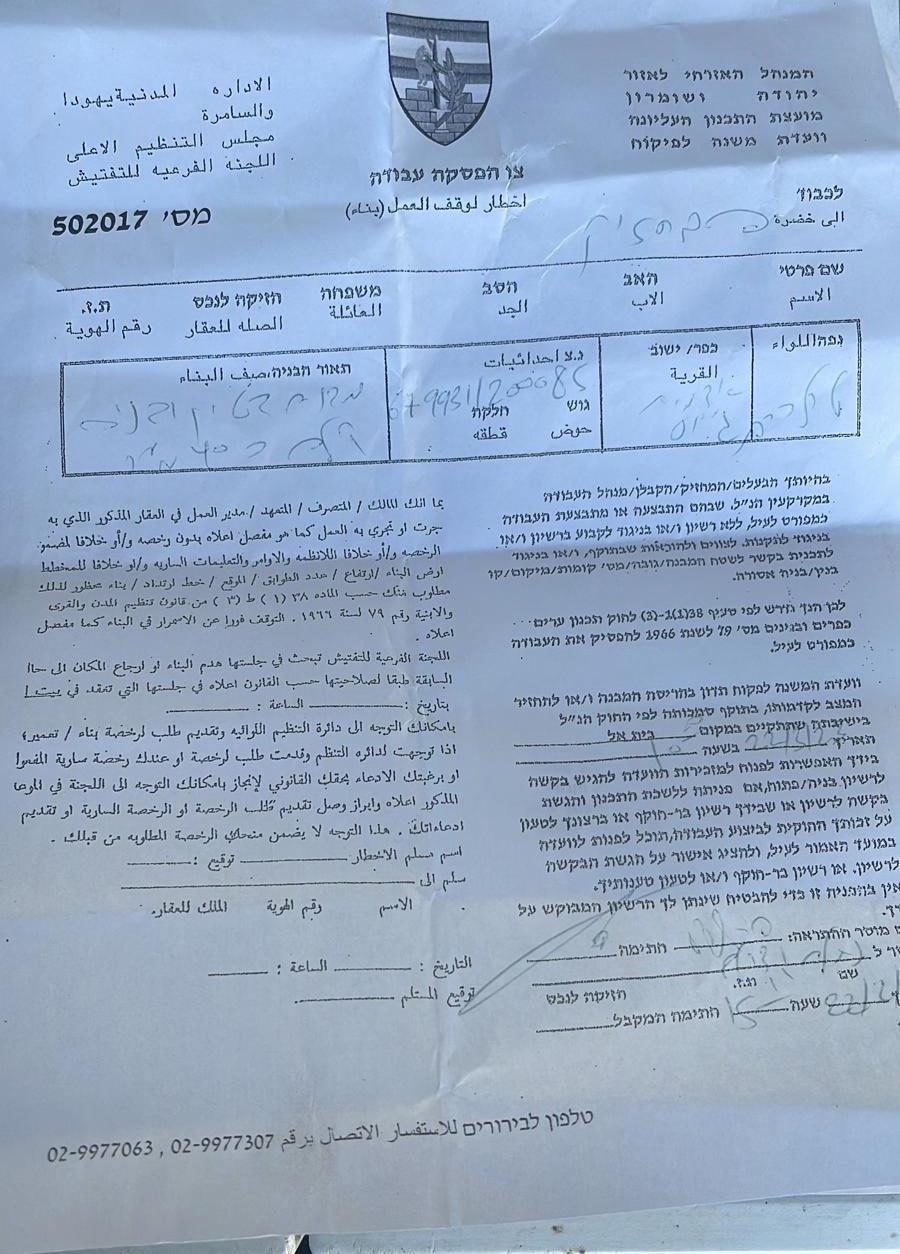 המנהל האזרחי לאזור
יהודה ושומרון
מועצת התכנון העליונה
וועדת משנה לפיקוח
الاداره المدنية يهودا
والسامرة
مجلس التنظيم الاعلى
اللجنة الفرعيه للتفتيش
צו הפסקת עבודה
اخطار لوقف العمل (بناء)
מס' 502017
לכבוד
الى حضرة
שם פרטי האב הסב משפחה חזיקה לנכס ת.ז.
الاسم الاب الجد العائلة الصله للعقار رقم الهوية
נפה اللواء
כפר/ ישוב
القرية
נ.צ احداثيات
679931/200085
גוש חלקה
حوض قطقه
תאור הבניה/صيف البناء
בהיותך הבעלים/המחזיק/הקבלן/מנהל העבודה
במקרקעין הנ"ל, שבהם התבצעה או מתבצעת העבודה
כמפורט לעיל, ללא רשיון ו/או בניגוד לקבוע ברשיון ו/או
בניגוד לתקנות, לצווים ולהוראות שבתוקף, ו/או בניגוד
לתכנית בקשר לשטח המבנה/גובה/מס' קומות/מיקום/קו
בנין/בניה אסורה.
לכן הנך נדרש לפי סעיף 38(1)-(3) לחוק תכנון ערים
כפרים ובניינים מס' 79 לשנת 1966 להפסיק את העבודה
כמפורט לעיל.
וועדת המשנה לפקוח תדון בהריסת המבנה ו/או להחזיר
המצב לקדמותו, בתוקף סמכותה לפי החוק הנ"ל
בישיבתה שתתקיים במקום בית אל
תאריך בשעה
בידך האפשרות לפנות למזכירות הוועדה להגיש בקשה
לרשיון בניה/פתוח, אם פניתה ללשכת התכנון והגשת
בקשה לרשיון או שבידך רשיון בר-תוקף או ברצונך לטעון
על זכותך החוקית לביצוע העבודה, תוכל לפנות לוועדה
במועד האמור לעיל, ולהציג אישור על הגשת הבקשה
לרשיון, או רשיון בר-תוקף ו/או לטעון טענותיך.
אין בהפניה זו כדי להבטיח שינתן לך הרשיון המבוקש על
מוסר ההתראה: חתימה
שם ת.ז. חזיקה לנכס
שעה חתימה המקבל
بما انك المالك / المتصرف / المتعهد / مدير العمل في العقار المذكور الذي به
جرت او تجري به العمل كما هو مفصل اعلاه بدون رخصه و/أو خلافا لمضمون
الرخصه و/أو خلافا للانظمه والاوامر والتعليمات الساريه و/او خلافا للمخطط
ارض البناء /ارتفاع / عدد الطوابق / الموقع / خط ارتداد / بناء محظور لذلك
مطلوب منك حسب الماده ٣٨ (١) ط (٣) من قانون تنظيم المدن والقرى
والابنية رقم ٧٩ لسنة ١٩٦٦ . التوقف فورا عن الاسمرار في البناء كما مفصل
اعلاه .
اللجنة الفرعية للتفتيش تبحث في جلستها هدم البناء او ارجاع المكان الى
السابقة طبقا لصلاحيتها حسب القانون اعلاه في جلستها التي تعقد في
بتاريخ : الساعة :
بامكانك التوجه الى دائرة التنظيم اللوائيه وتقديم طلب لرخصة بناء / تعمير،
اذا توجهت لدائره التنظم وقدمت طلب لرخصة او عندك رخصة سارية المفعول
او برغبتك الادعاء بحقك القانوني لإنجاز بامكانك التوجه الى اللجنة في
المذكور اعلاه وابراز وصل تقديم طلب الرخصة او الرخصة السارية او تقديم
ادعاءاتك . هذا التوجه لا يضمن منحك الرخصة المطلوبه من قبلك .
اسم مسلم الاخطار توقيع :
سلم الى
الاسم رقم الهوية الملك للعقار.
التاريخ : الساعة :
توقيع المستلم
טלפון לבירורים للاستفسار الاتصال برقم 02-9977307 , 02-9977063